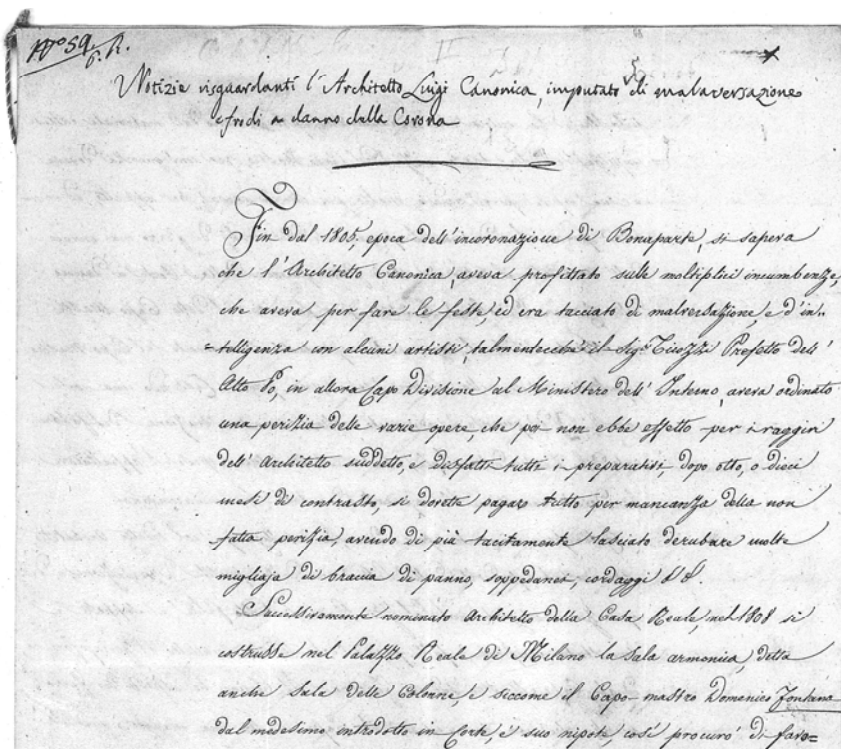 Nro 59/6. R.
Notizie risguardanti l'Architetto Luigi Canonica, imputato di malaversazione
e frodi a danno della Corona
Fin dal 1805, epoca dell'incoronazione di Bonaparte, si sapeva
che l'Architetto Canonica, aveva profittato sulle moltiplici incumbenze,
che aveva per fare le feste, ed era tacciato di malversazione, e d'in-
=telligenza con alcuni artisti, talmentecchè il Sigr. Ticozzi Prefetto dell'
Alto Po, in allora Capo Divisione al Ministero dell'Interno, aveva ordinato
una perizia delle varie opere, che poi non ebbe effetto per i raggiri
dell'Architetto suddetto, e disfatti tutti i preparativi, dopo otto, o dieci
mesi di contrasto, si dovette pagar tutto per mancanza della non
fatta perizia, avendo di più tacitamente lasciato derubare molte
migliaja di braccia di panno, soppedanei, cordaggi &. &.
Successivamente nominato Architetto della Casa Reale, nel 1808 si
costrusse nel Palazzo Reale di Milano la sala armonica, detta
anche Sala delle Colonne, e siccome il Capo-mastro Domenico Fontana
dal medesimo introdotto in Corte, è suo nipote, così procurò di favo=